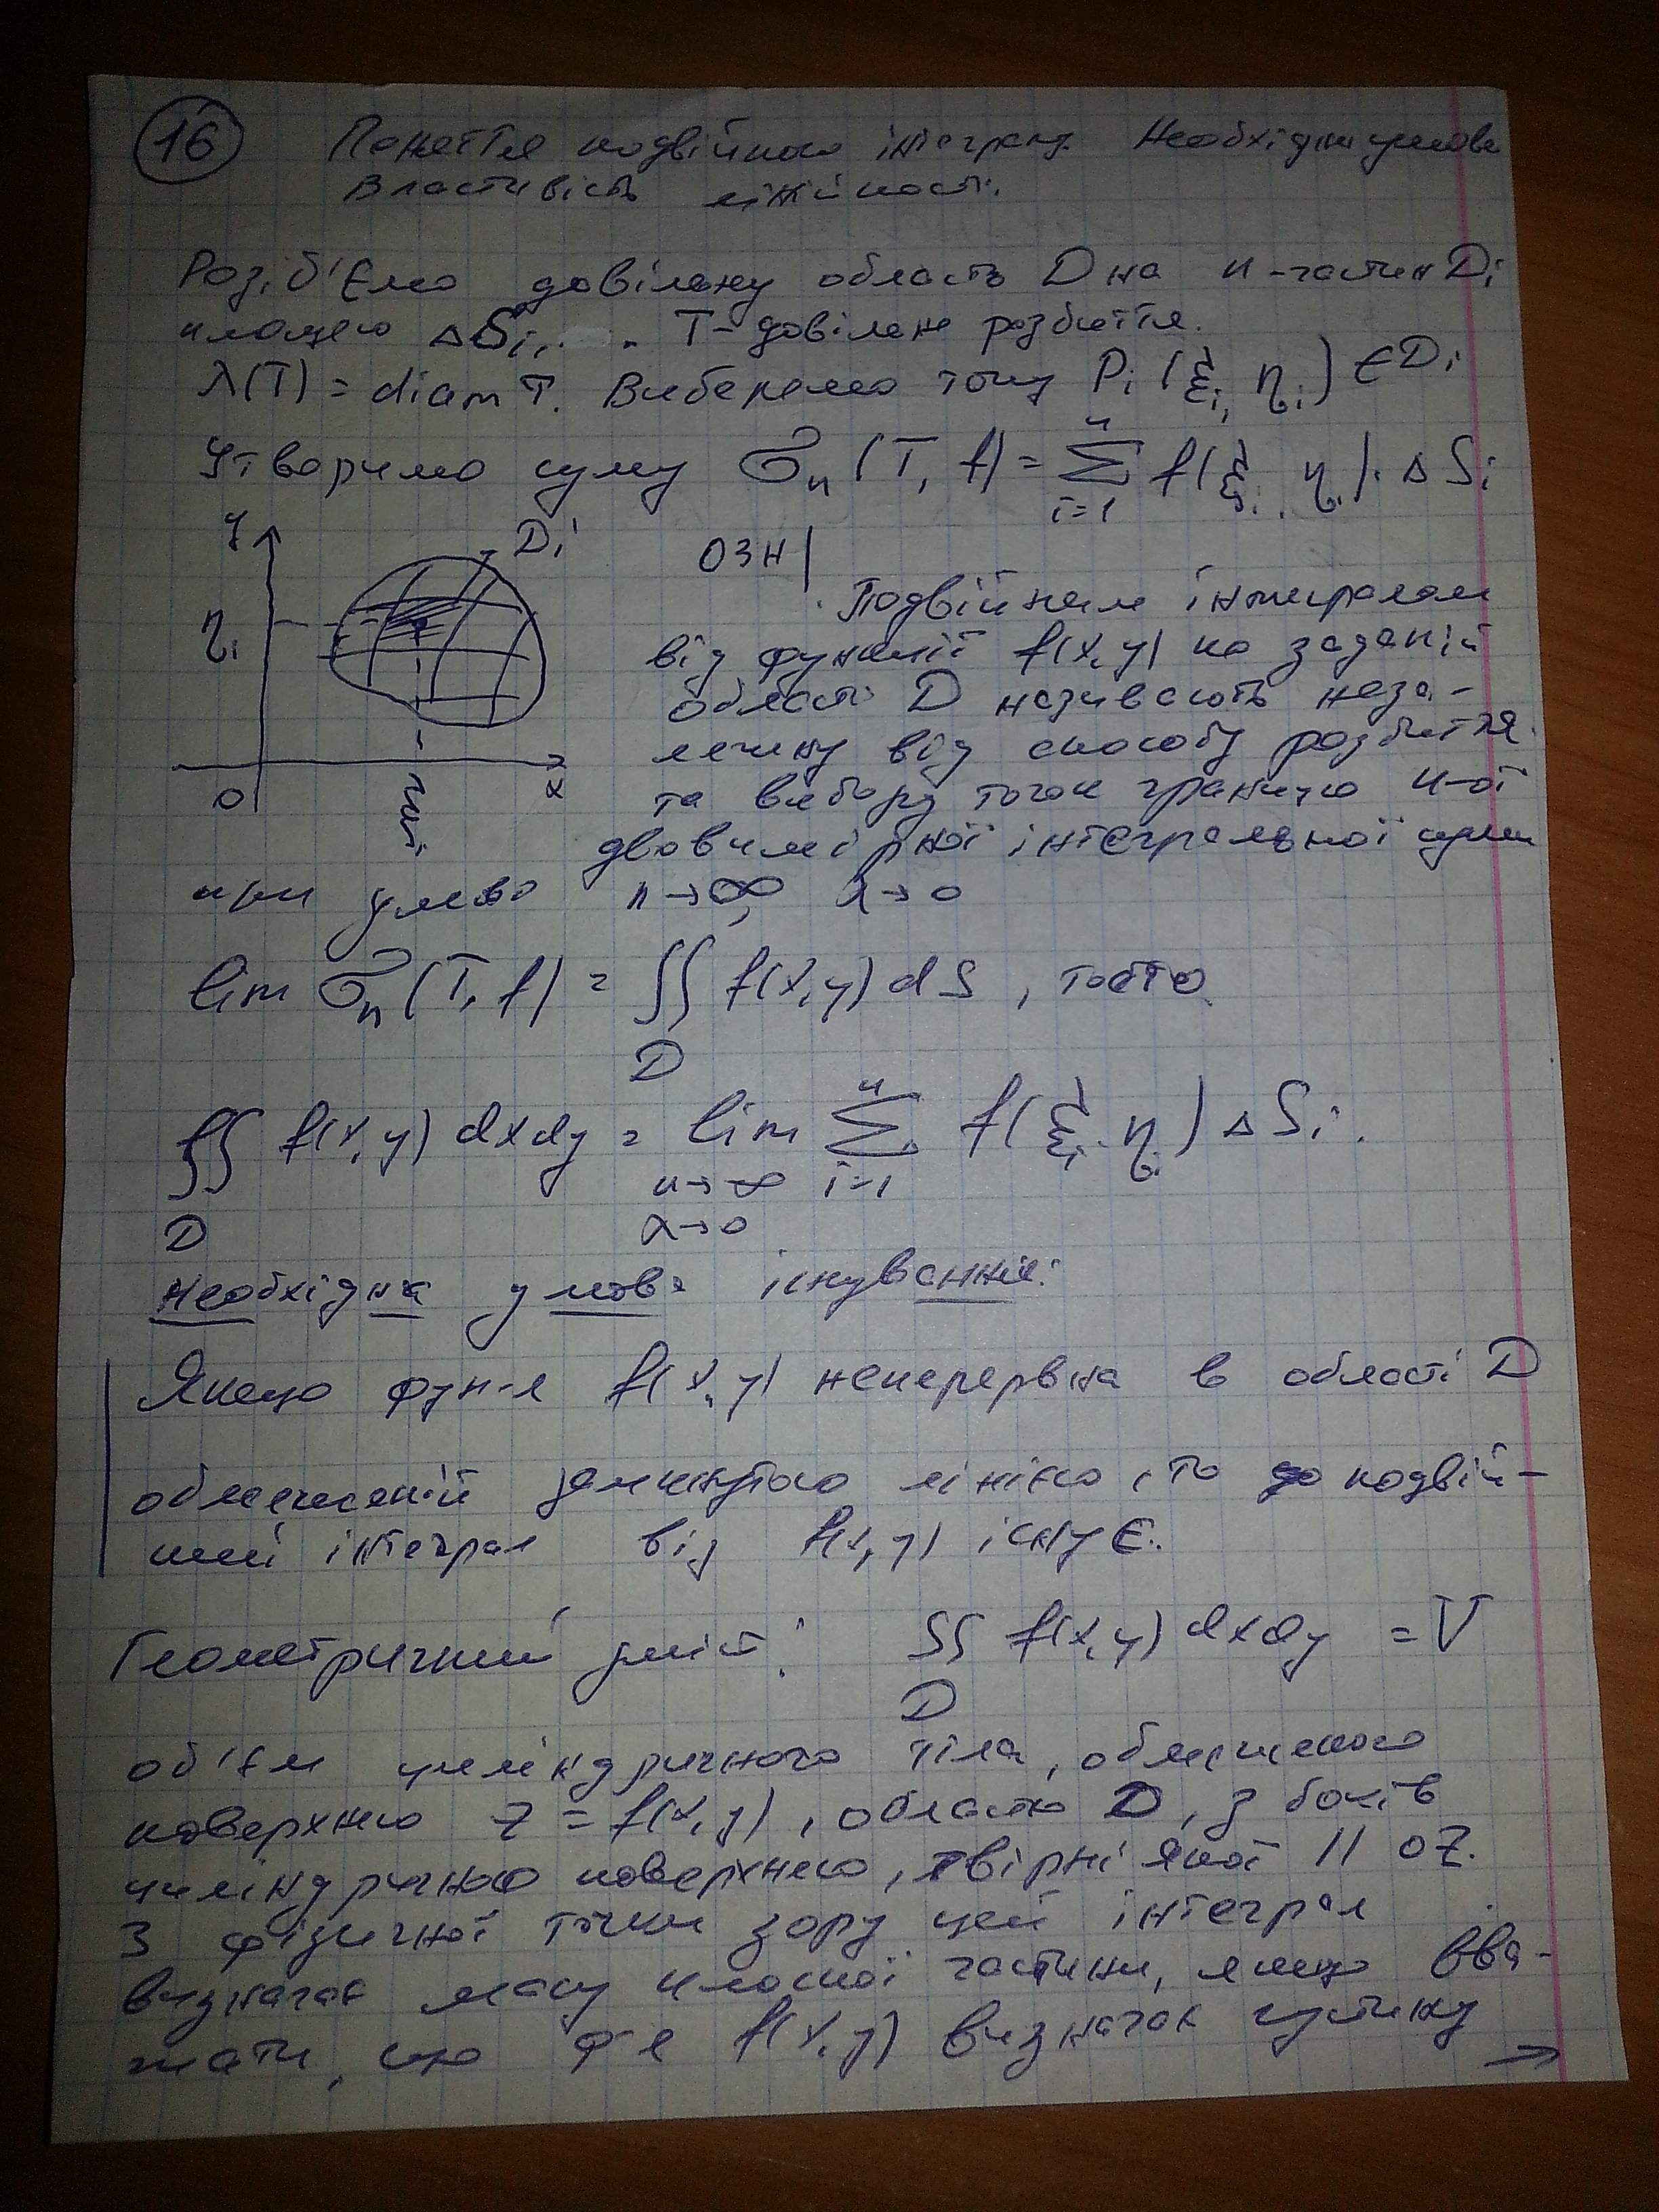 16 Поняття подвійного інтегралу. Необхідна умова
Властивість лінійності.
Розіб'ємо довільну область D на n-частин Di
площею ΔSi, . T - довільне розбиття.
λ(T) = diam T. Виберемо точку Pi (ξi, ηi) ∈ Di
Утворимо суму σn (T, f) = Σ f(ξi, ηi) · ΔSi
n
i=1
y
Di
ηi
0
x
ξi
ОЗН
Подвійним інтегралом
від функції f(x,y) по заданій
області D називають неза-
лежну від способу розбиття
та вибору точок границю n-ої
двовимірної інтегральної суми
при умові n→∞, λ→0
lim σn (T, f) = ∬ f(x,y) dS, тобто
D
∬ f(x,y) dxdy = lim Σ f(ξi, ηi) ΔSi.
n
n→∞ i=1
D λ→0
Необхідна умова існування:
Якщо фун-я f(x,y) неперервна в області D
обмеженій замкнутою лінією, то подвій-
ний інтеграл від f(x,y) існує.
Геометричний зміст: ∬ f(x,y) dxdy = V
D
об'єм циліндричного тіла, обмеженого
поверхнею z = f(x,y), областю D, з боків
циліндричною поверхнею, твірні якої || OZ.
З фізичної точки зору цей інтеграл
визначає масу плоскої частини, якщо вва-
жати, що ф-я f(x,y) визначає густину
→